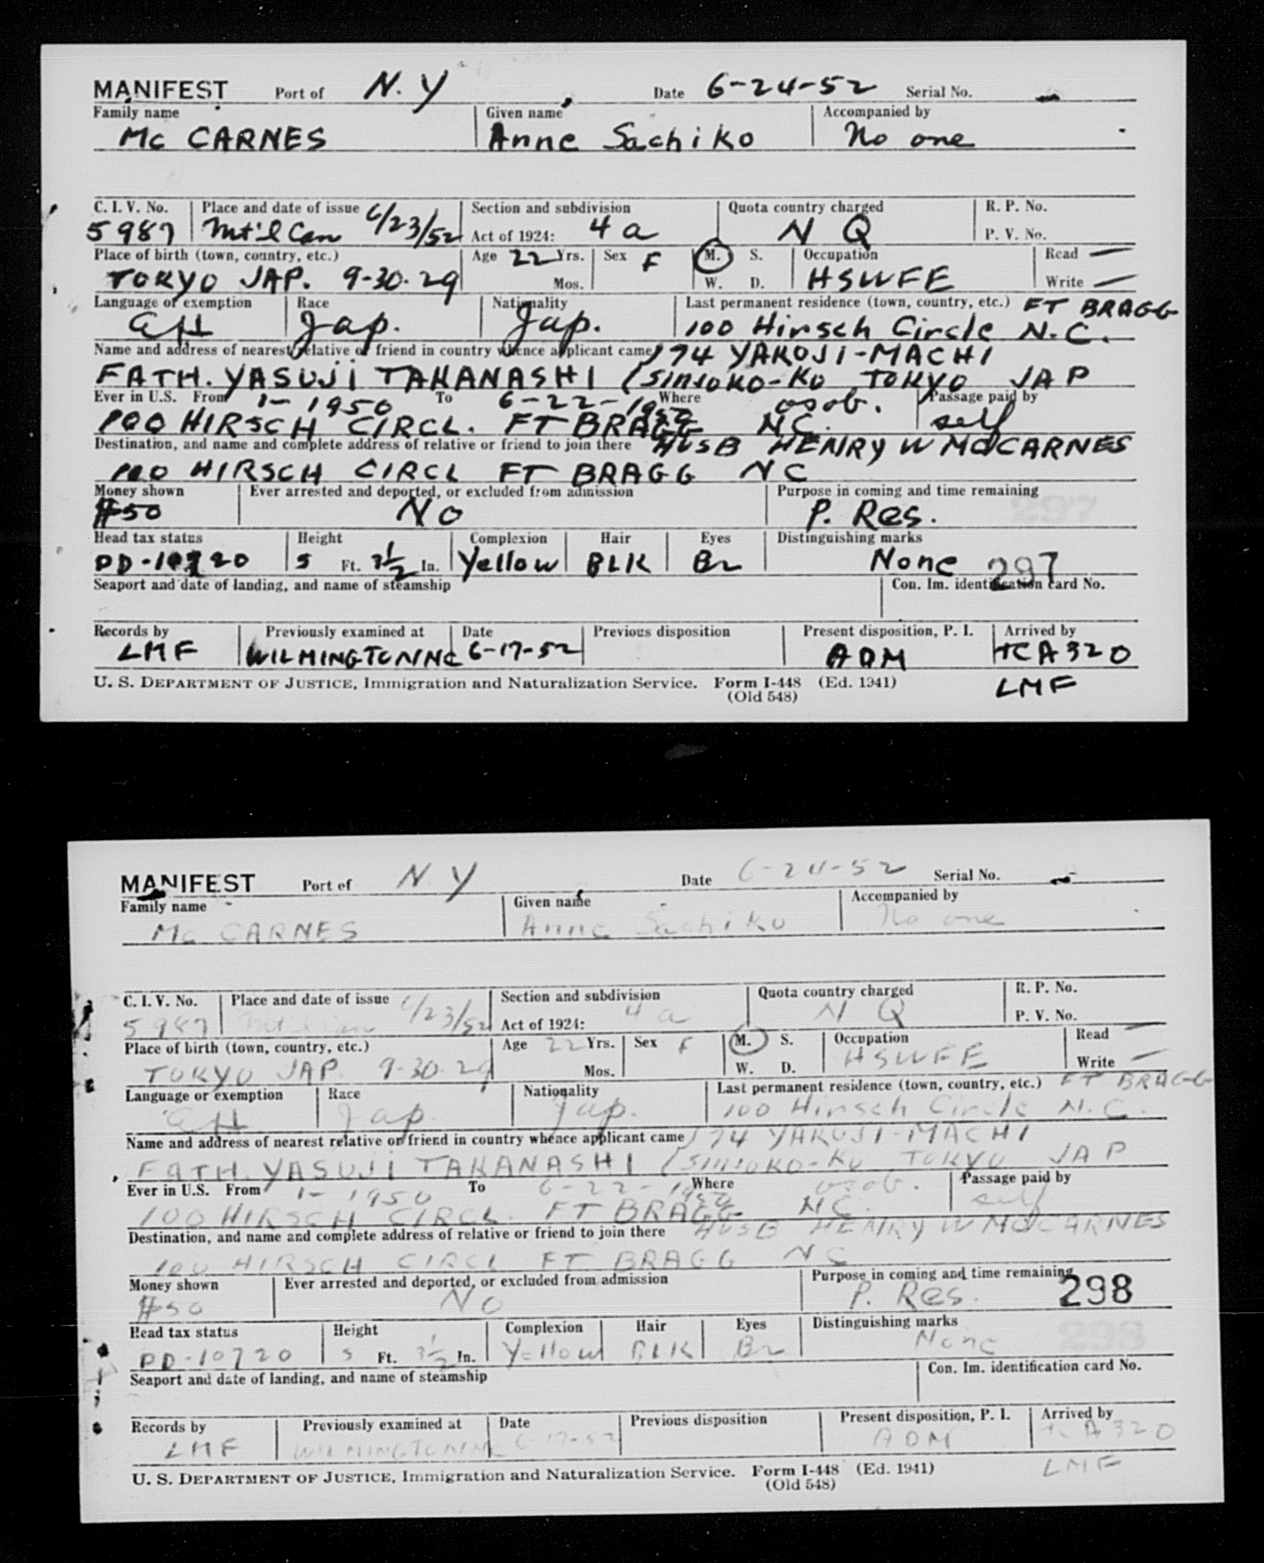 MANIFEST Port of N. Y Date 6-24-52 Serial No. —
Family name Given name Accompanied by
Mc CARNES Anne Sachiko No one
C. I. V. No. Place and date of issue 6/23/52 Section and subdivision Quota country charged R. P. No.
5987 Mt'l Can Act of 1924: 4a N Q P. V. No.
Place of birth (town, country, etc.) Age 22 Yrs. Sex F M. S. Occupation Read —
TOKYO JAP. 9-30-29 Mos. W. D. HSWFE Write —
Language or exemption Race Nationality Last permanent residence (town, country, etc.) FT BRAGG
Jap. Jap. 100 Hirsch Circle N.C.
Name and address of nearest relative or friend in country whence applicant came 174 YAKOJI-MACHI
FATH. YASUJI TAKANASHI (SINJOKO-KU TOKYO JAP
Ever in U.S. From 1-1950 To 6-22-1952 Where Passage paid by
100 HIRSCH CIRCL. FT BRAGG NC. self
Destination, and name and complete address of relative or friend to join there HUSB HENRY W McCARNES
100 HIRSCH CIRCL FT BRAGG NC
Money shown Ever arrested and deported, or excluded from admission Purpose in coming and time remaining 297
$50 No P. Res.
Head tax status Height Complexion Hair Eyes Distinguishing marks
PD-10720 5 Ft. 3½ In. Yellow BLK Br None 297
Seaport and date of landing, and name of steamship Con. Im. identification card No.
Records by Previously examined at Date Previous disposition Present disposition, P. I. Arrived by
LMF WILMINGTONNC 6-17-52 ADM TCA320
U. S. DEPARTMENT OF JUSTICE, Immigration and Naturalization Service. Form I-448 (Ed. 1941) LMF
(Old 548)
MANIFEST Port of N Y Date 6-24-52 Serial No. —
Family name Given name Accompanied by
Mc CARNES Anne Sachiko No one
C. I. V. No. Place and date of issue 6/23/52 Section and subdivision Quota country charged R. P. No.
5987 Mt'l Can Act of 1924: 4a N Q P. V. No.
Place of birth (town, country, etc.) Age 22 Yrs. Sex F M. S. Occupation Read —
TOKYO JAP. 9-30-29 Mos. W. D. HSWFE Write —
Language or exemption Race Nationality Last permanent residence (town, country, etc.) FT BRAGG
Jap. Jap. 100 Hirsch Circle N.C.
Name and address of nearest relative or friend in country whence applicant came 174 YAKOJI-MACHI
FATH. YASUJI TAKANASHI (SINJOKO-KU TOKYO JAP
Ever in U.S. From 1-1950 To 6-22-1952 Where Passage paid by
100 HIRSCH CIRCL. FT BRAGG NC. self
Destination, and name and complete address of relative or friend to join there HUSB HENRY W McCARNES
100 HIRSCH CIRCL FT BRAGG NC
Money shown Ever arrested and deported, or excluded from admission Purpose in coming and time remaining
$50 No P. Res. 298
Head tax status Height Complexion Hair Eyes Distinguishing marks
PD-10720 5 Ft. 3½ In. Yellow BLK Br None 298
Seaport and date of landing, and name of steamship Con. Im. identification card No.
Records by Previously examined at Date Previous disposition Present disposition, P. I. Arrived by
LMF WILMINGTONNC 6-17-52 ADM TCA320
U. S. DEPARTMENT OF JUSTICE, Immigration and Naturalization Service. Form I-448 (Ed. 1941) LMF
(Old 548)